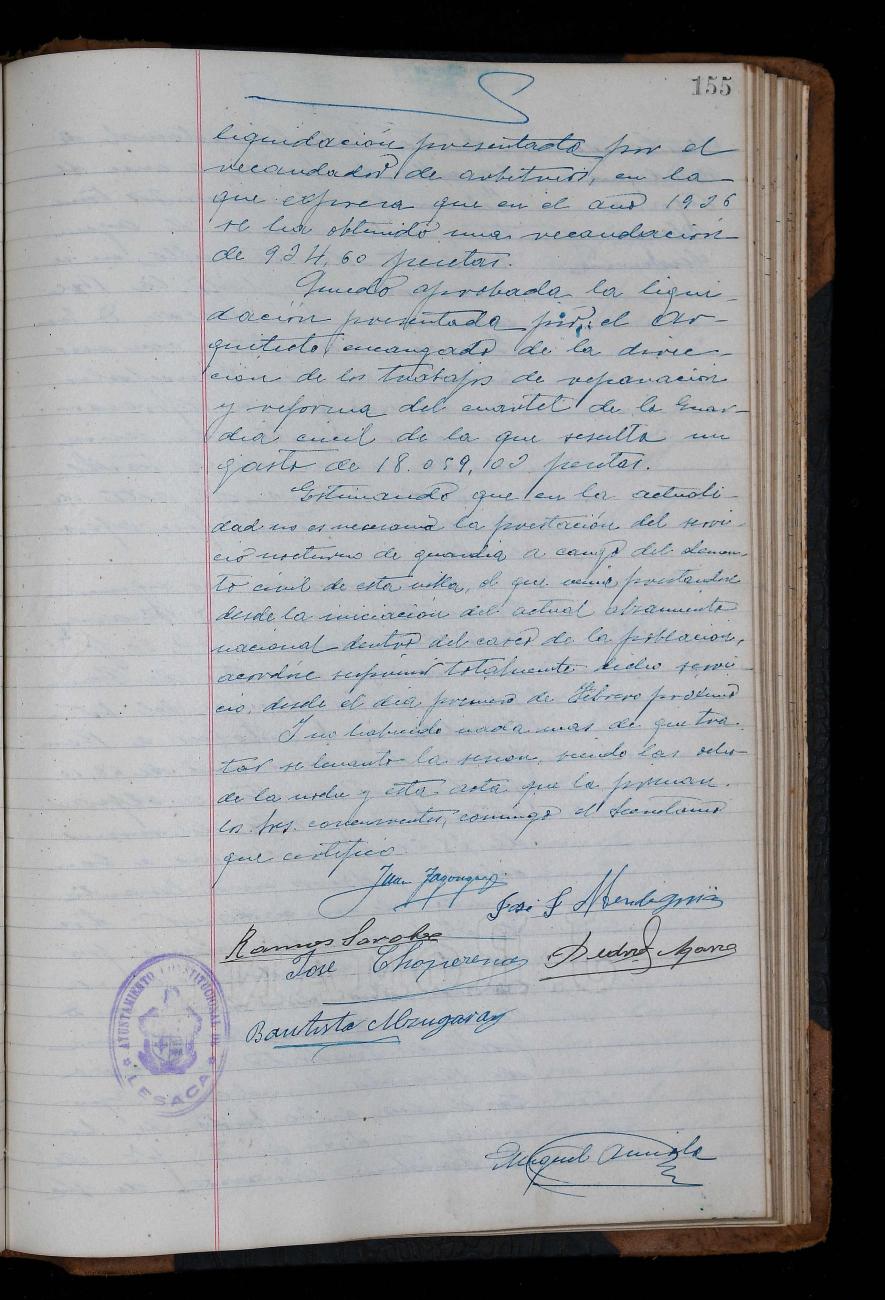 155
liquidación presentada por el
recaudador de arbitrios, en la
que expresa que en el año 1926
se ha obtenido una recaudación
de 924,60 pesetas.
Quedó aprobada la liqui-
dación presentada por el Ar-
quitecto encargado de la direc-
ción de los trabajos de reparación
y reforma del cuartel de la Guar-
dia civil de la que resulta un
gasto de 18.059,02 pesetas.
Estimando que en la actuali-
dad no es necesaria la prestación del servi-
cio nocturno de guardia a cargo del elemen-
to civil de esta villa, el que venía prestandose
desde la iniciación del actual alzamiento
nacional dentro del casco de la población,
acordóse suprimir totalmente dicho servi-
cio, desde el día primero de Febrero próximo
Y no habiendo nada mas de que tra-
tar se levantó la sesion, siendo las ocho
de la noche y esta acta que la firman
los Sres. concurrentes, conmigo el Secretario
que certifico.
Juan
José F Mendiguia
Ramos Saroba
José Choperena
Pedro
Bautista
AYUNTAMIENTO CONSTITUCIONAL DE
LESACA
Miguel